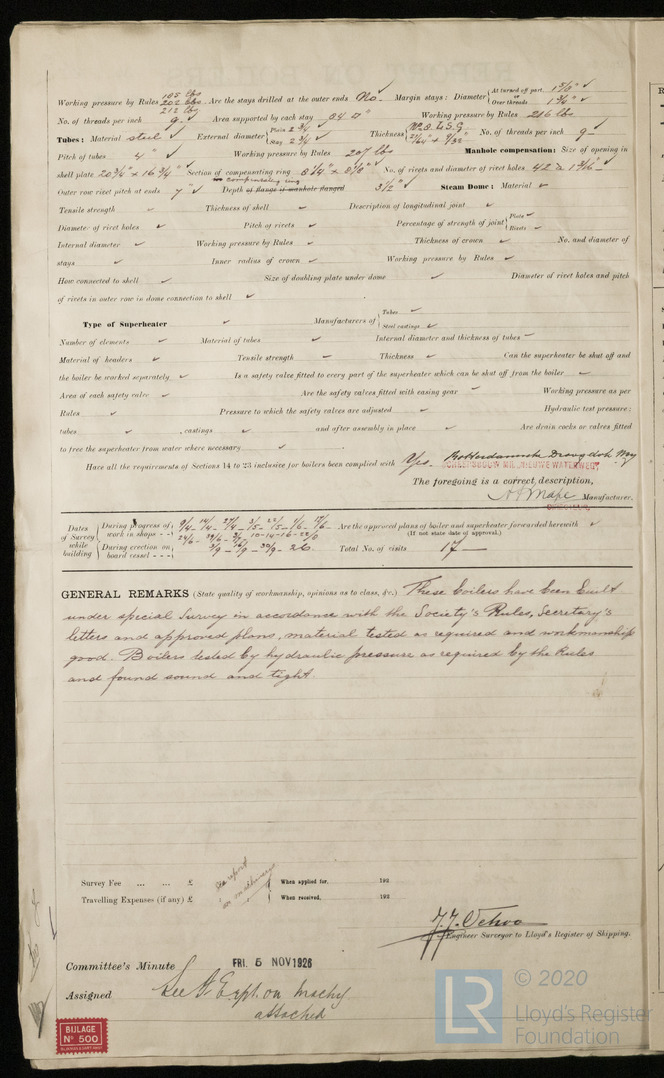 Working pressure by Rules 202 lbs 212 lbs. Are the stays drilled at the outer ends No. Margin stays: Diameter { At turned off part, 1 5/8" or Over threads 1 3/4"
No. of threads per inch 9. Area supported by each stay 84 □" Working pressure by Rules 216 lbs
Tubes: Material steel External diameter { Plain 2 3/4" Stay 2 3/4" Thickness { No 8 L.S.G. No. of threads per inch 9
Pitch of tubes 4" Working pressure by Rules 207 lbs Manhole compensation: Size of opening in
shell plate 20 3/4" x 16 3/4" Section of compensating ring No. of rivets and diameter of rivet holes 42 à 1 3/16"
Outer row rivet pitch at ends 7" Depth of flange if manhole flanged compensating ring 3 1/2" Steam Dome: Material
Tensile strength Thickness of shell Description of longitudinal joint
Diameter of rivet holes Pitch of rivets Percentage of strength of joint { Plate Rivets
Internal diameter Working pressure by Rules Thickness of crown No. and diameter of
stays Inner radius of crown Working pressure by Rules
How connected to shell Size of doubling plate under dome Diameter of rivet holes and pitch
of rivets in outer row in dome connection to shell
Type of Superheater Manufacturers of { Tubes Steel castings
Number of elements Material of tubes Internal diameter and thickness of tubes
Material of headers Tensile strength Thickness Can the superheater be shut off and
the boiler be worked separately Is a safety valve fitted to every part of the superheater which can be shut off from the boiler
Area of each safety valve Are the safety valves fitted with easing gear Working pressure as per
Rules Pressure to which the safety valves are adjusted Hydraulic test pressure:
tubes , castings and after assembly in place Are drain cocks or valves fitted
to free the superheater from water where necessary
Have all the requirements of Sections 14 to 23 inclusive for boilers been complied with Yes. Rotterdamsche Droogdok My
SCHEEPSBOUW MIJ. NIEUWE WATERWEG
The foregoing is a correct description,
Manufacturer.
Dates of Survey while building { During progress of work in shops - - During erection on board vessel - - - 26. Are the approved plans of boiler and superheater forwarded herewith
(If not state date of approval.)
Total No. of visits 17
GENERAL REMARKS (State quality of workmanship, opinions as to class, &c.) These boilers have been built
under special survey in accordance with the Society's Rules, Secretary's
letters and approved plans, material tested as required and workmanship
good. Boilers tested by hydraulic pressure as required by the Rules
and found sound and tight.
Survey Fee ... ... £ See report on machinery When applied for, 192
Travelling Expenses (if any) £ When received, 192
Engineer Surveyor to Lloyd's Register of Shipping.
Committee's Minute FRI. 5 NOV 1926
Assigned See Rpt. on machy
attached
BIJLAGE
No 500
© 2020
LR Lloyd's Register
Foundation